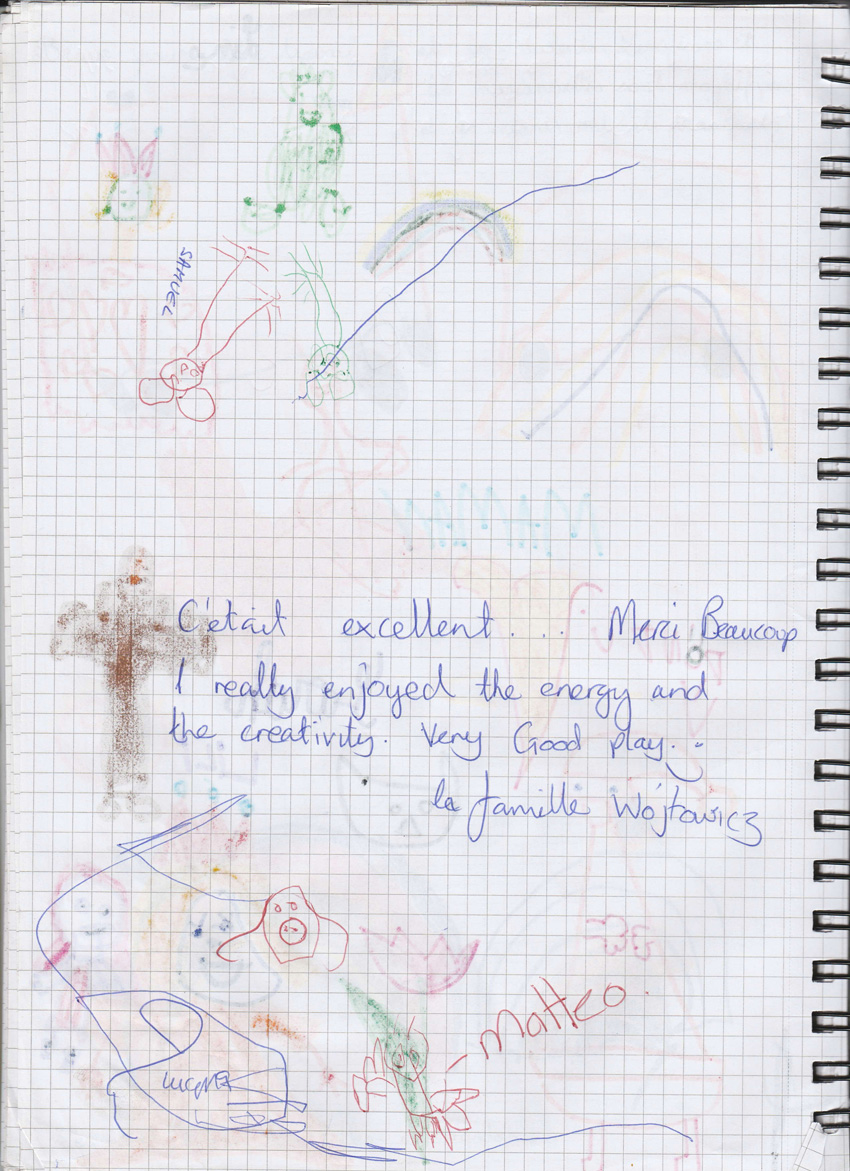 SAMUEL
C'était excellent.... Merci Beaucoup
I really enjoyed the energy and
the creativity. Very Good play.
la famille Wojtowicz
Matteo.